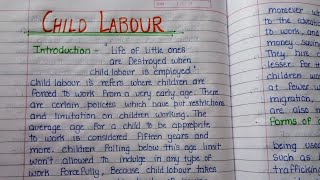 CHILD LABOUR
Introduction - "Life of little ones
are Destroyed when
child labour is employed"
Child labour is refers where children are
Forced to work from a very early age. There
are certain policies which have put restrictions
and limitation on children working. The
average age for a child to be appropriate
to work is considered Fifteen years and
more. children Falling below this age limit
won't allowed to indulge in any type of
work Forcefully, Because child labour takes
moreover wh
to the educatio
to work, and
money saving
They pure c
lesser. For th
children wor
at fewer w
migration,
are also n
Forms of c
being used
Such as
trafficking